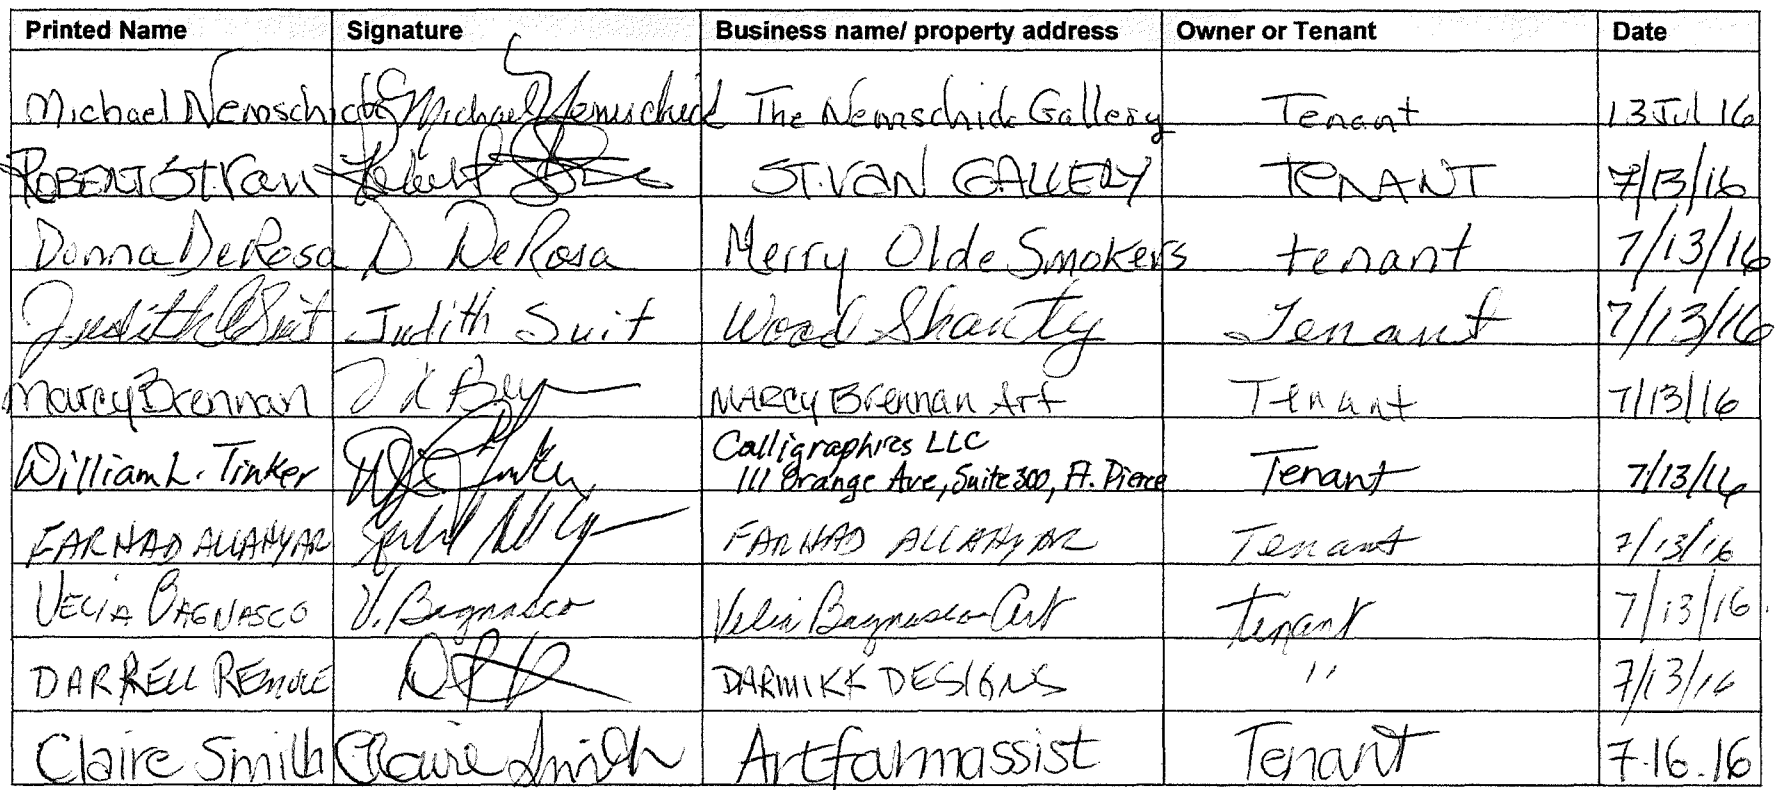 Printed Name Signature Business name/ property address Owner or Tenant Date
Michael Nemschick Michael Nemschick The Nemschick Gallery Tenant 13 Jul 16
ROBERT STIVan Robert STIVAN GALLERY TENANT 7/13/16
Donna DeRosa D DeRosa Merry Olde Smokers tenant 7/13/16
Judith Suit Judith Suit Wood Shanty Tenant 7/13/16
Marcy Brennan MARCY Brennan Art Tenant 7/13/16
William L. Tinker Calligraphics LLC
111 Orange Ave, Suite 300, Ft. Pierce Tenant 7/13/16
FARHAD ALLAHYAR FARHAD ALLAHYAR Tenant 7/13/16
VELIA BAGNASCO V. Bagnasco Velia Bagnasco Art tenant 7/13/16
DARRELL DARMIKK DESIGNS " 7/13/16
Claire Smith Claire Smith Artfarmassist Tenant 7.16.16